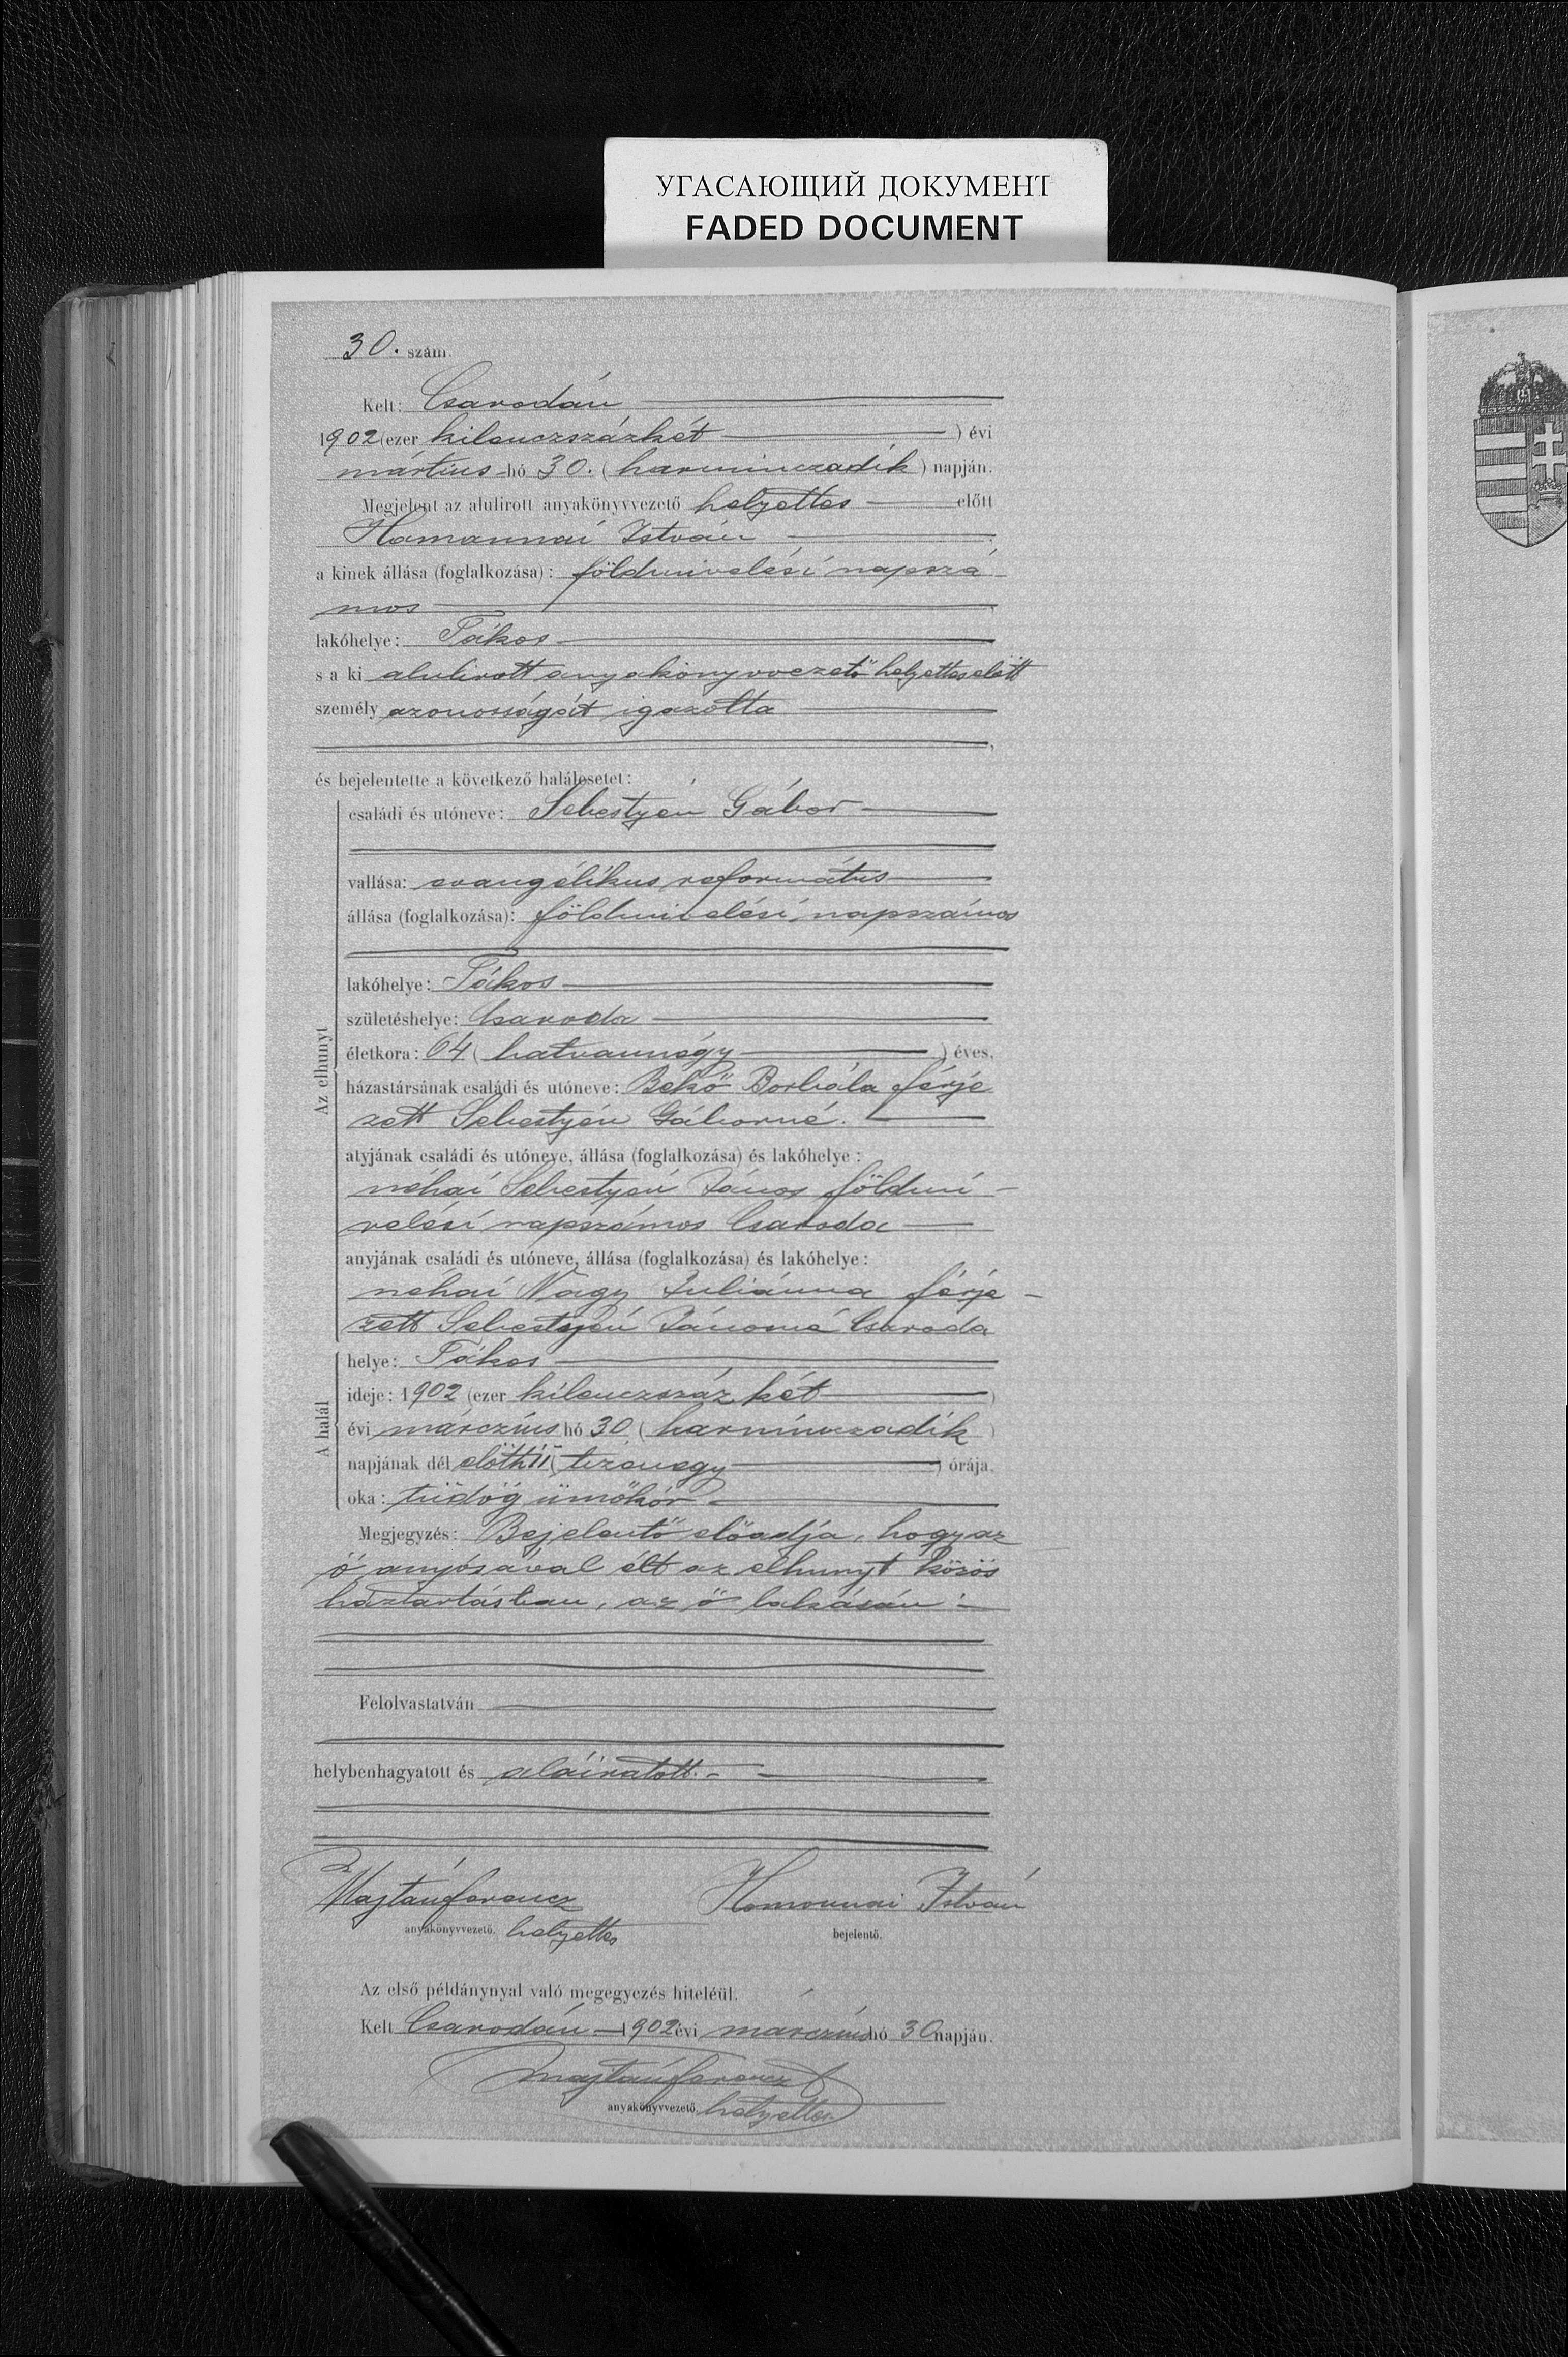 УГАСАЮЩИЙ ДОКУМЕНТ
FADED DOCUMENT
30. szám.
Kelt: Csarodán
1902 (ezer kilenczszázkét) évi
mártius hó 30. (harminczadik) napján.
Megjelent az alulirott anyakönyvvezető helyettes előtt
Hamannai István
a kinek állása (foglalkozása): földmivelési napszá
mos
lakóhelye: Tákos
s a ki alulirott anyakönyvvezető helyettes előtt
személy azonosságát igazolta
és bejelentette a következő halálesetet:
Az elhunyt
családi és utóneve: Sebestyén Gábor
vallása: evangélikus református
állása (foglalkozása): földmivelési napszámos
lakóhelye: Tákos
születéshelye: Csaroda
életkora: 64 (hatvannégy) éves,
házastársának családi és utóneve: Bekő Borbála férje
zett Sebestyén Gáborné.
atyjának családi és utóneve, állása (foglalkozása) és lakóhelye:
néhai Sebestyén János földmi-
velési napszámos Csaroda
anyjának családi és utóneve, állása (foglalkozása) és lakóhelye:
néhai Nagy Juliánna férje-
zett Sebestyén Jánosné Csaroda
A halál
helye: Tákos
ideje: 1902 (ezer kilenczszáz két)
évi márczius hó 30 (harminczadik)
napjának dél előtti 11 (tizenegy) órája.
oka: tüdőgümőkór
Megjegyzés: Bejelentő előadja, hogy az
ő anyósával élt az elhunyt közös
háztartásban, az ő lakásán.
Felolvastatván
helybenhagyatott és aláiratott.
Majtán Ferencz Homonnai István
anyakönyvvezető. helyettes bejelentő.
Az első példánynyal való megegyezés hiteléül.
Kelt Csarodán 1902 évi márczius hó 30 napján.
Majtán Ferencz
anyakönyvvezető. helyettes